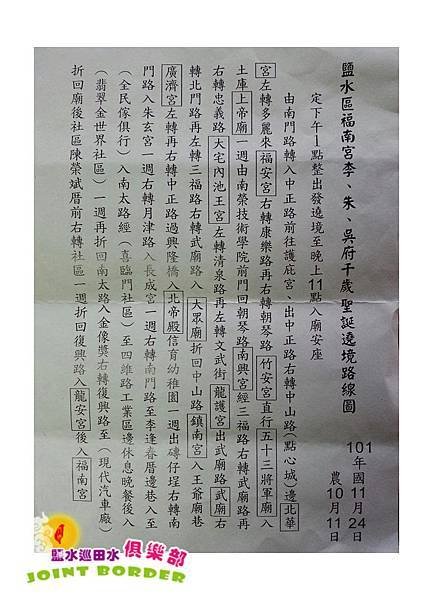 鹽水區福南宮李、朱、吳府千歲聖誕遶境路線圖
101年國11月24日
農10月11日
定下午1點整出發遶境至晚上11點入廟安座
由南門路轉入中正路前往護庇宮、出中正路右轉中山路(點心城)邊北華
宮左轉多麗來福安宮右轉康樂路再右轉朝琴路竹安宮直行五十三將軍廟入
土庫上帝廟一週由南榮技術學院前門回朝琴路南興宮經三福路右轉武廟路再
右轉忠義路大宅內池王宮左轉清泉路再左轉文武街龍護宮出武廟路武廟右
轉北門路再左轉三福路右轉武廟路入大眾廟折回中山路鎮南宮入王爺廟巷
廣濟宮左轉再右轉中正路過興隆橋入北帝殿信育幼稚園一週出磚仔埕右轉南
門路入朱玄宮一週右轉月津路入長成宮一週右轉南門路至李逢春厝邊巷入至
(全民傢俱行)入南太路經(喜臨門社區)至四維路工業區邊休息晚餐後入
(翡翠金世界社區)一週再折回南太路入金像獎右轉復興路至(現代汽車廠)
折回廟後社區陳榮斌厝前右轉社區一週折回復興路入龍安宮後入福南宮
鹽水巡田水俱樂部
JOINT BORDER